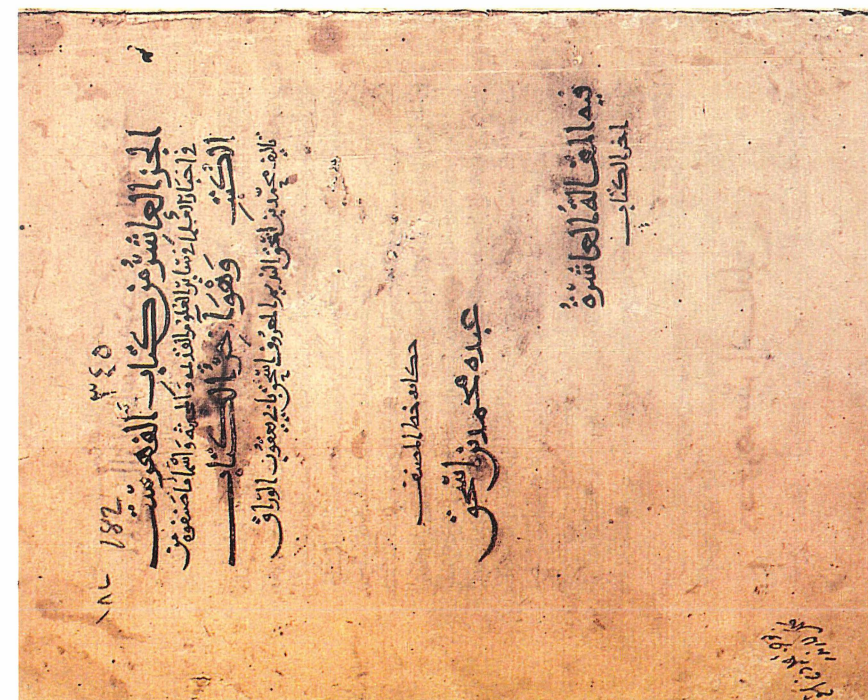 ٣٤٥
182
الجز العاشر من كتاب الفهرست
في اخبار العلما في سائر العلوم القديمة والمحدثة واسما ما صنفوه من
الكتب وهو آخر الكتاب
تاليف محمد بن اسحق النديم المعروف اسحق بابي يعقوب الوراق
حكايه خط المصنف
عبده محمد بن اسحق
فيه المقالة العاشرة
اخر الكتاب